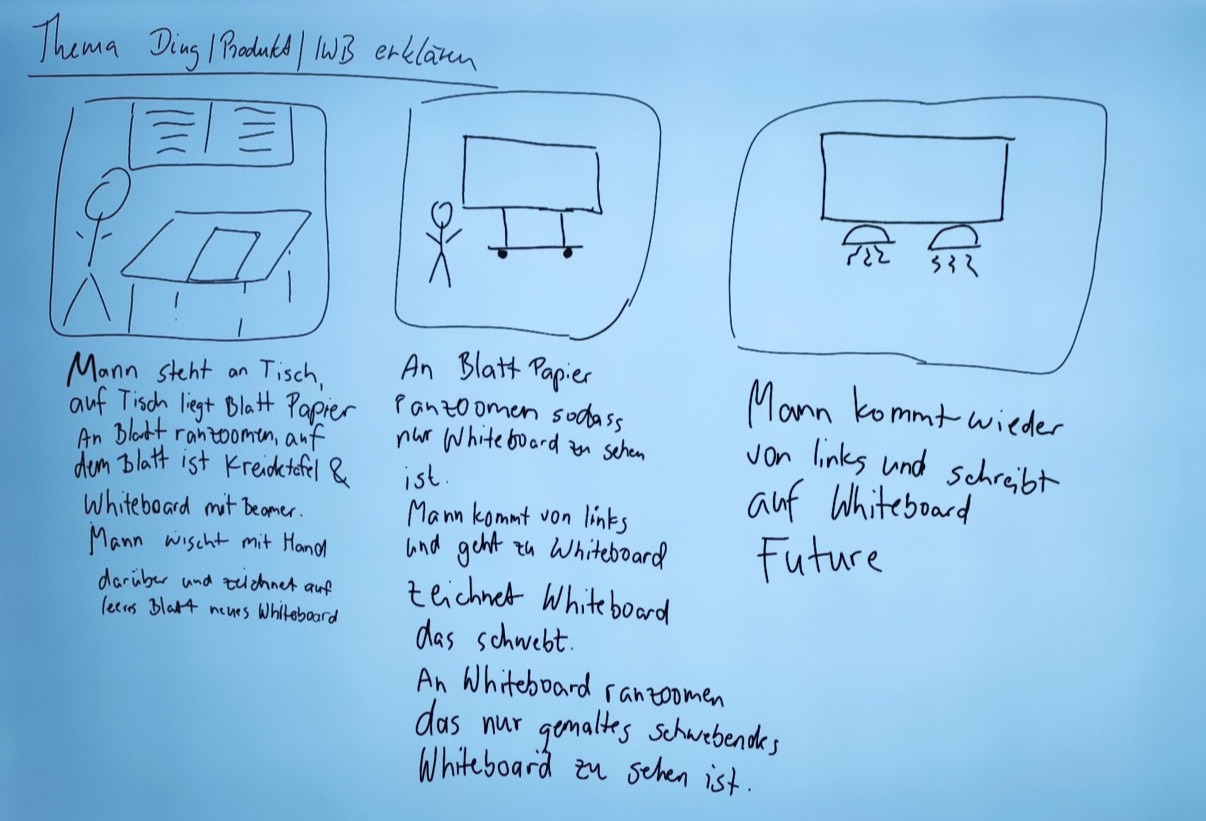 Thema Ding/Produkt/IWB erklären
Mann steht an Tisch,
auf Tisch liegt Blatt Papier
An Blatt ranzoomen, auf
dem Blatt ist Kreidetafel &
Whiteboard mit Beamer.
Mann wischt mit Hand
darüber und zeichnet auf
leeres Blatt neues Whiteboard
An Blatt Papier
ranzoomen sodass
nur Whiteboard zu sehen
ist.
Mann kommt von links
und geht zu Whiteboard
zeichnet Whiteboard
das schwebt.
An Whiteboard ranzoomen
das nur gemaltes schwebendes
Whiteboard zu sehen ist.
Mann kommt wieder
von links und schreibt
auf Whiteboard
Future